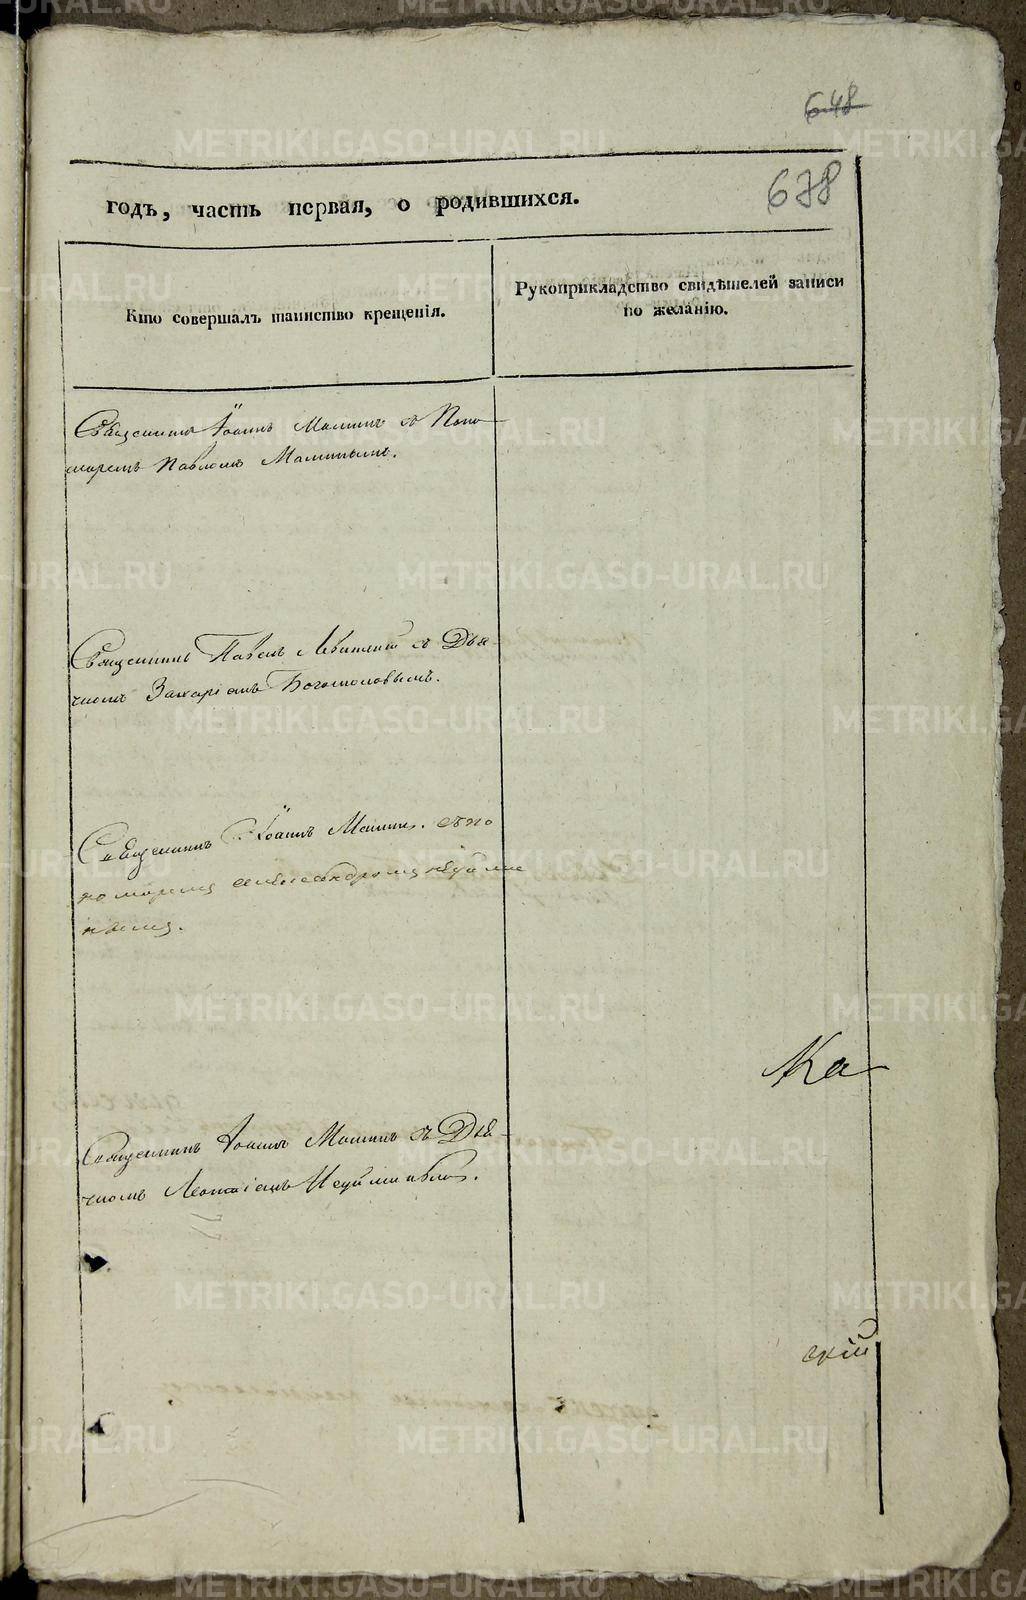 648
678
годъ, часть первая, о родившихся.
Кто совершалъ таинство крещенія.
Рукоприкладство свидѣтелей записи
по желанію.
Священникъ Іоаннъ Маминъ съ Поно
маремъ Павломъ Маминымъ.
Священникъ Павелъ Левитскій съ Дья
чкомъ Захаріемъ Богомоловымъ.
Священникъ Іоаннъ Маминъ. съ по
номаремъ Александромъ Неуйми
нымъ.
Священникъ Іоаннъ Маминъ съ Дья
чкомъ Неуйминымъ.
Ка
скій
METRIKI.GASO-URAL.RU